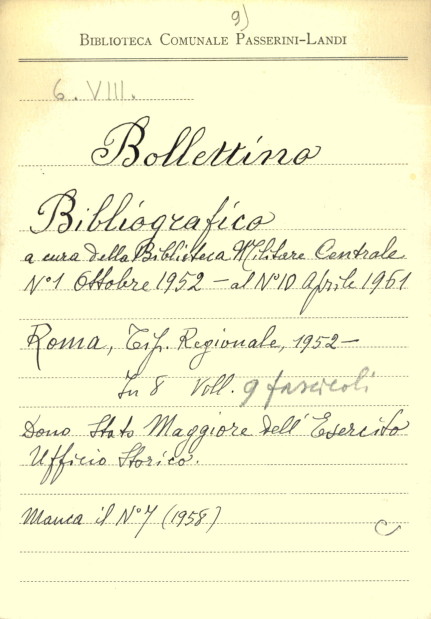 9)
BIBLIOTECA COMUNALE PASSERINI-LANDI
6. VIII.
Bollettino
Bibliografico
a cura della Biblioteca Militare Centrale
N°1 Ottobre 1952 - al N°10 Aprile 1961
Roma, Tip. Regionale, 1952-
In 8 Voll. 9 fascicoli
Dono Stato Maggiore dell'Esercito
Ufficio Storico.
Manca il N°7 (1958)
C